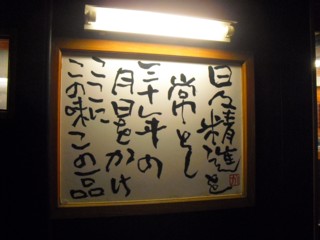 日々精進を
常とし
三十年の
月日をかけ
ここに
この味この一品